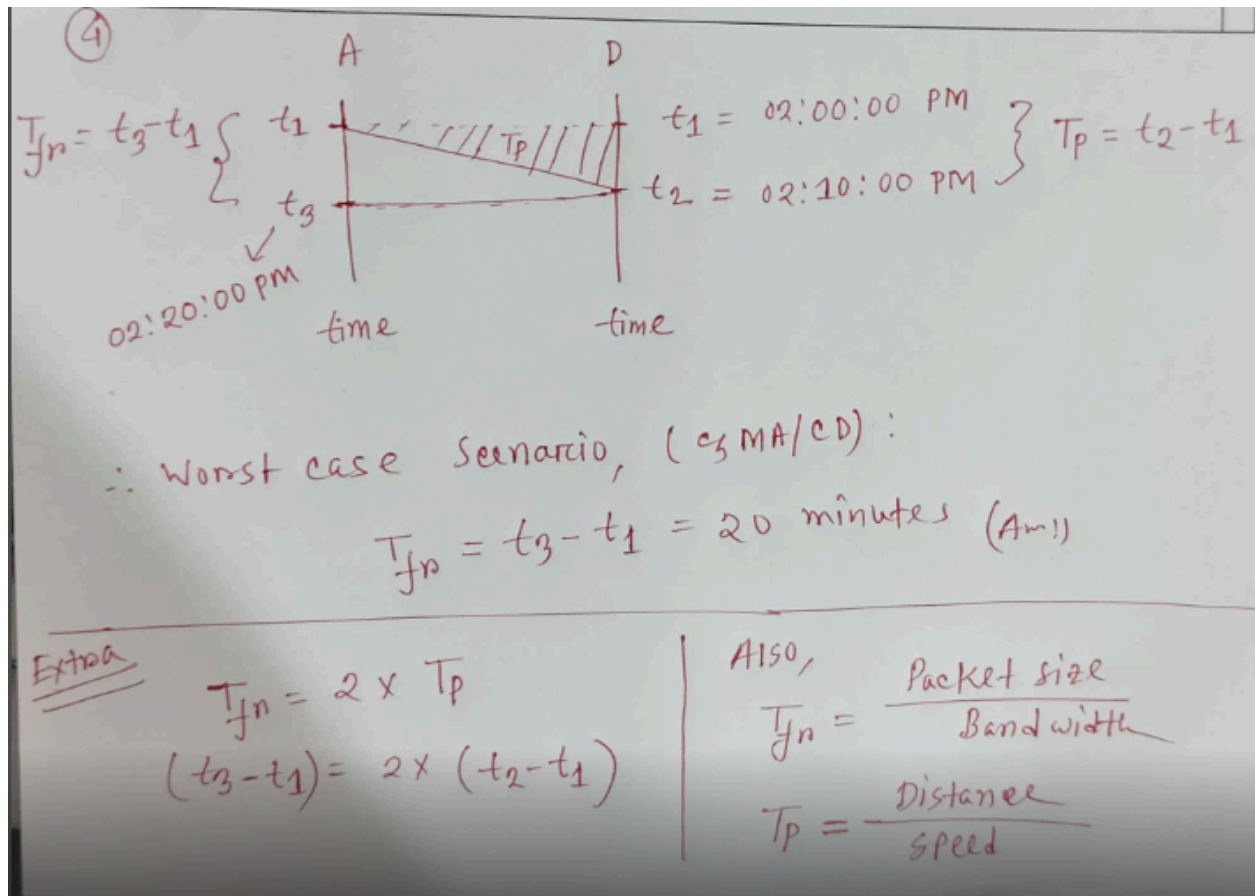 4
A D
T_fr = t3-t1 { t1 Tp t1 = 02:00:00 PM } Tp = t2-t1
t3 t2 = 02:10:00 PM
02:20:00 PM
time time
∴ Worst case Scenario, (CSMA/CD):
T_fr = t3-t1 = 20 minutes (Ans)
Extra
T_fr = 2 x Tp
(t3-t1) = 2x (t2-t1)
Also,
T_fr = Packet size / Bandwidth
Tp = Distance / Speed